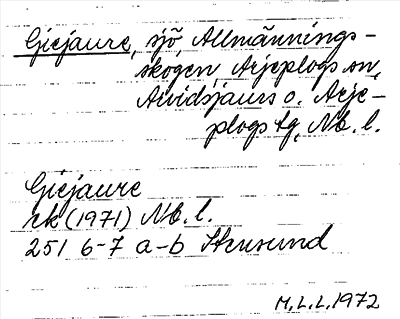 Giejaure, sjö, Allmännings-
skogen, Arjeplogs sn,
Arvidsjaurs o. Arje-
plogs tg, Nb. l.
Giejaure
ek (1971) Nb. l.
25I 6-7 a-b Stensund
M. L. L. 1972